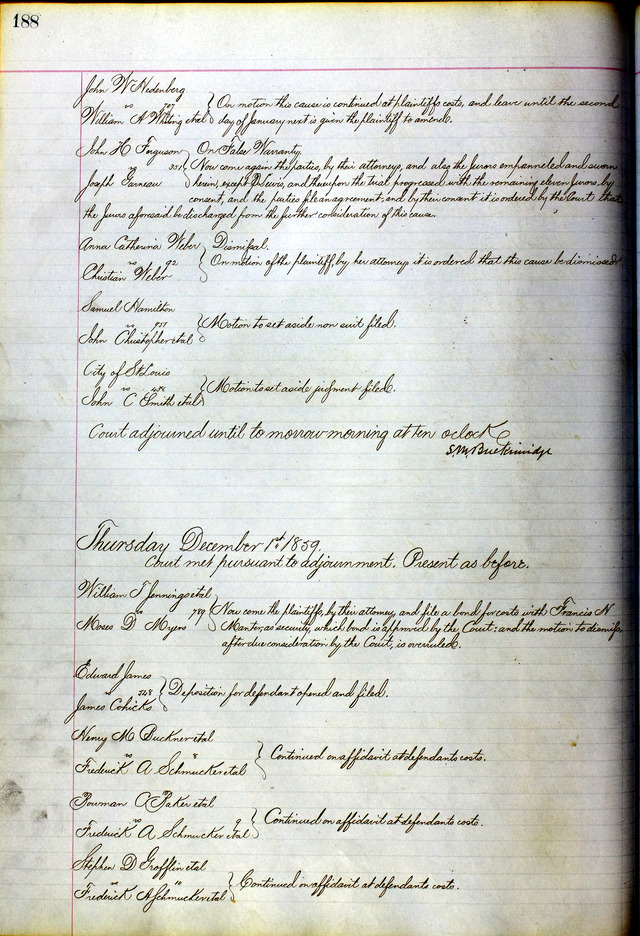 188
John W Hedenberg
vs 707 On motion this cause is continued at plaintiffs costs, and leave until the second
William A Whiting etal day of January next is given the plaintiff to amend.
John H Ferguson On False Warranty
vs 351 Now come again the parties, by their attorneys, and also the Jurors empanneled and sworn
Joseph Garneau herein, except D Lewis, and thereupon the trial progressed with the remaining eleven jurors, by
consent, and the parties file an agreement, and by their consent it is ordered by the Court that
the Jurors aforesaid be discharged from the further consideration of this cause.
Anna Catherina Weber Dismissal.
vs 92 On motion of the plaintiff, by her attorney it is ordered that this cause be dismissed
Christian Weber
Samuel Hamilton
vs Motion to set aside non suit filed.
John Christopher etal
City of St Louis
vs Motion to set aside judgment filed.
John C Smith etal
Court adjourned until to morrow morning at ten oclock
Thursday December 1st 1859.
Court met pursuant to adjournment. Present as before.
William T Jennings etal
vs 789 Now come the plaintiffs, by their attorney, and file a bond for costs with Francis H
Moses D Myers Manter, as security, which bond is approved by the Court; and the motion to dismiss,
after due consideration by the Court, is overruled.
Edward James
vs 548 Deposition for defendant opened and filed.
James Cohick
Henry M Buckner etal
vs 8 Continued on affidavit at defendants costs.
Frederick A Schmucker etal
Bowman C Baker etal
vs 9 Continued on affidavit at defendants costs.
Frederick A Schmucker etal
Stephen D Grofflin etal
vs 10 Continued on affidavit at defendants costs.
Frederick A Schmucker etal